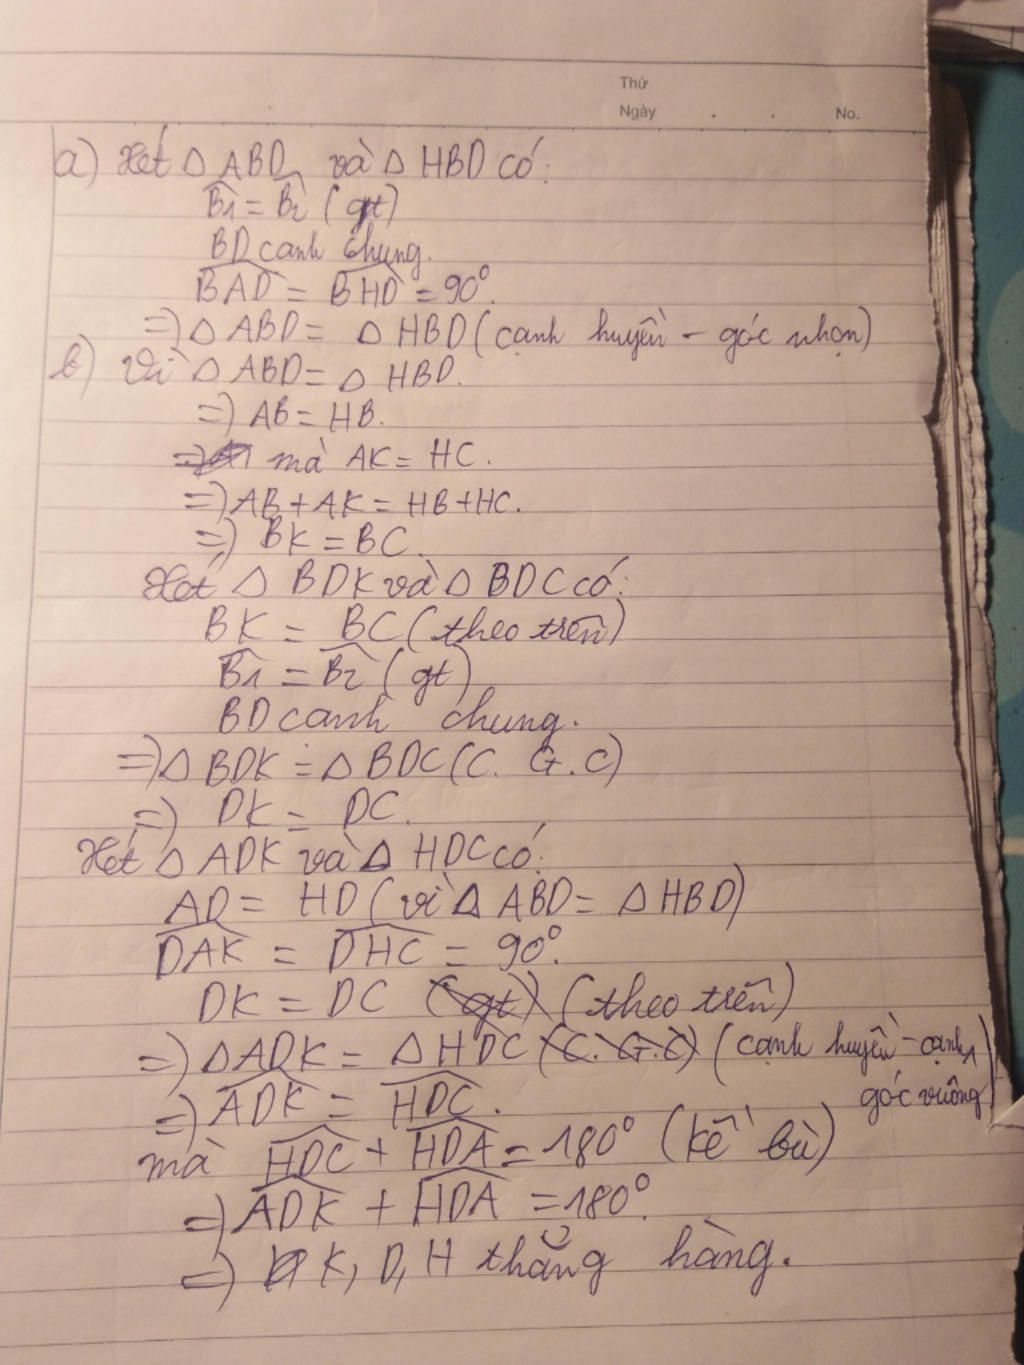 Thứ
Ngày . . No.
a) Xét △ ABD và △ HBD có:
B̂1 = B̂2 (gt)
BD cạnh chung.
BAD = BHD = 90°.
=> △ ABD = △ HBD (cạnh huyền - góc nhọn)
b) Vì △ ABD = △ HBD.
=> AB = HB.
mà AK = HC.
=> AB + AK = HB + HC.
=> BK = BC.
Xét △ BDK và △ BDC có:
BK = BC (theo trên)
B̂1 = B̂2 (gt)
BD cạnh chung.
=> △ BDK = △ BDC (C. G. C)
=> DK = DC.
Xét △ ADK và △ HDC có:
AD = HD (vì △ ABD = △ HBD)
DAK = DHC = 90°.
DK = DC (gt) (theo trên)
=> △ ADK = △ HDC (C. G. C) (cạnh huyền - cạnh
góc vuông)
=> ADK = HDC.
mà HDC + HDA = 180° (kề bù)
=> ADK + HDA = 180°.
=> K, D, H thẳng hàng.